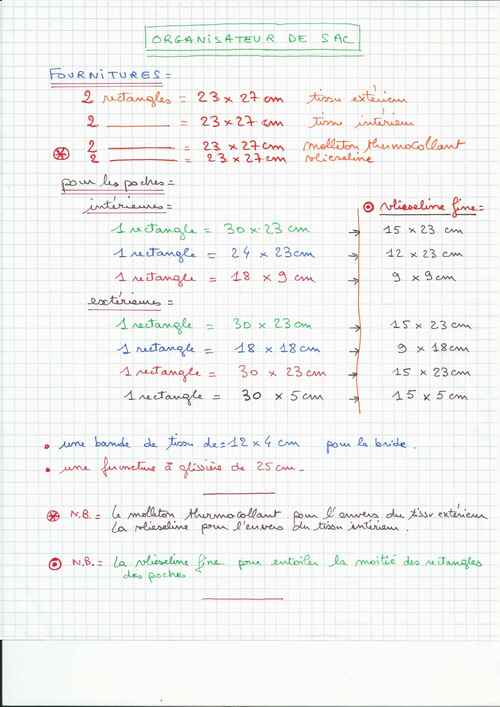 ORGANISATEUR DE SAC
FOURNITURES =
2 rectangles = 23 x 27 cm tissu extérieur
2 ———— = 23 x 27 cm tissu intérieur
2 ———— = 23 x 27 cm molleton thermocollant
2 ———— = 23 x 27 cm vlieseline
pour les poches =
intérieures = vlieseline fine =
1 rectangle = 30 x 23 cm → 15 x 23 cm
1 rectangle = 24 x 23 cm → 12 x 23 cm
1 rectangle = 18 x 9 cm → 9 x 9 cm
extérieures =
1 rectangle = 30 x 23 cm → 15 x 23 cm
1 rectangle = 18 x 18 cm → 9 x 18 cm
1 rectangle = 30 x 23 cm → 15 x 23 cm
1 rectangle = 30 x 5 cm → 15 x 5 cm
• une bande de tissu de = 12 x 4 cm pour la bride.
• une fermeture à glissière de 25 cm.
N.B. = Le molleton thermocollant pour l'envers du tissu extérieur
La vlieseline pour l'envers du tissu intérieur.
N.B. = La vlieseline fine pour entoiler la moitié des rectangles
des poches